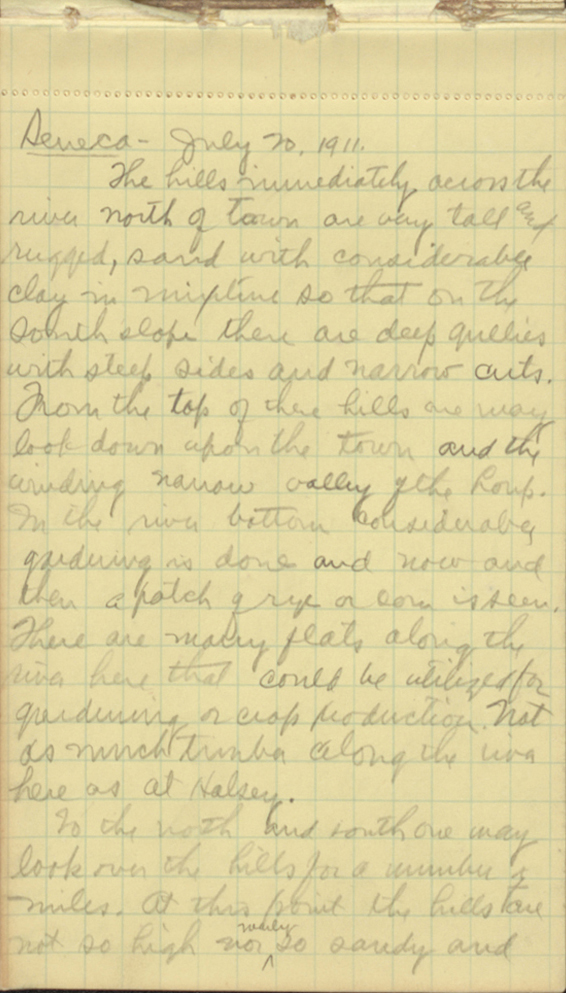 Seneca - July 20, 1911.
The hills immediately across the
river north of town are very tall and
rugged, sand with considerable
clay in mixture so that on the
south slope there are deep gullies
with steep sides and narrow cuts.
From the top of these hills one may
look down upon the town and the
winding narrow valley of the Loup.
In the river bottom considerable
gardening is done and now and
then a patch of rye or corn is seen.
There are many flats along the
river here that could be utilized for
gardening or crop production. Not
as much timber along the river
here as at Halsey.
To the north and south one may
look over the hills for a number of
miles. At this point the hills are
not so high nor nearly so sandy and